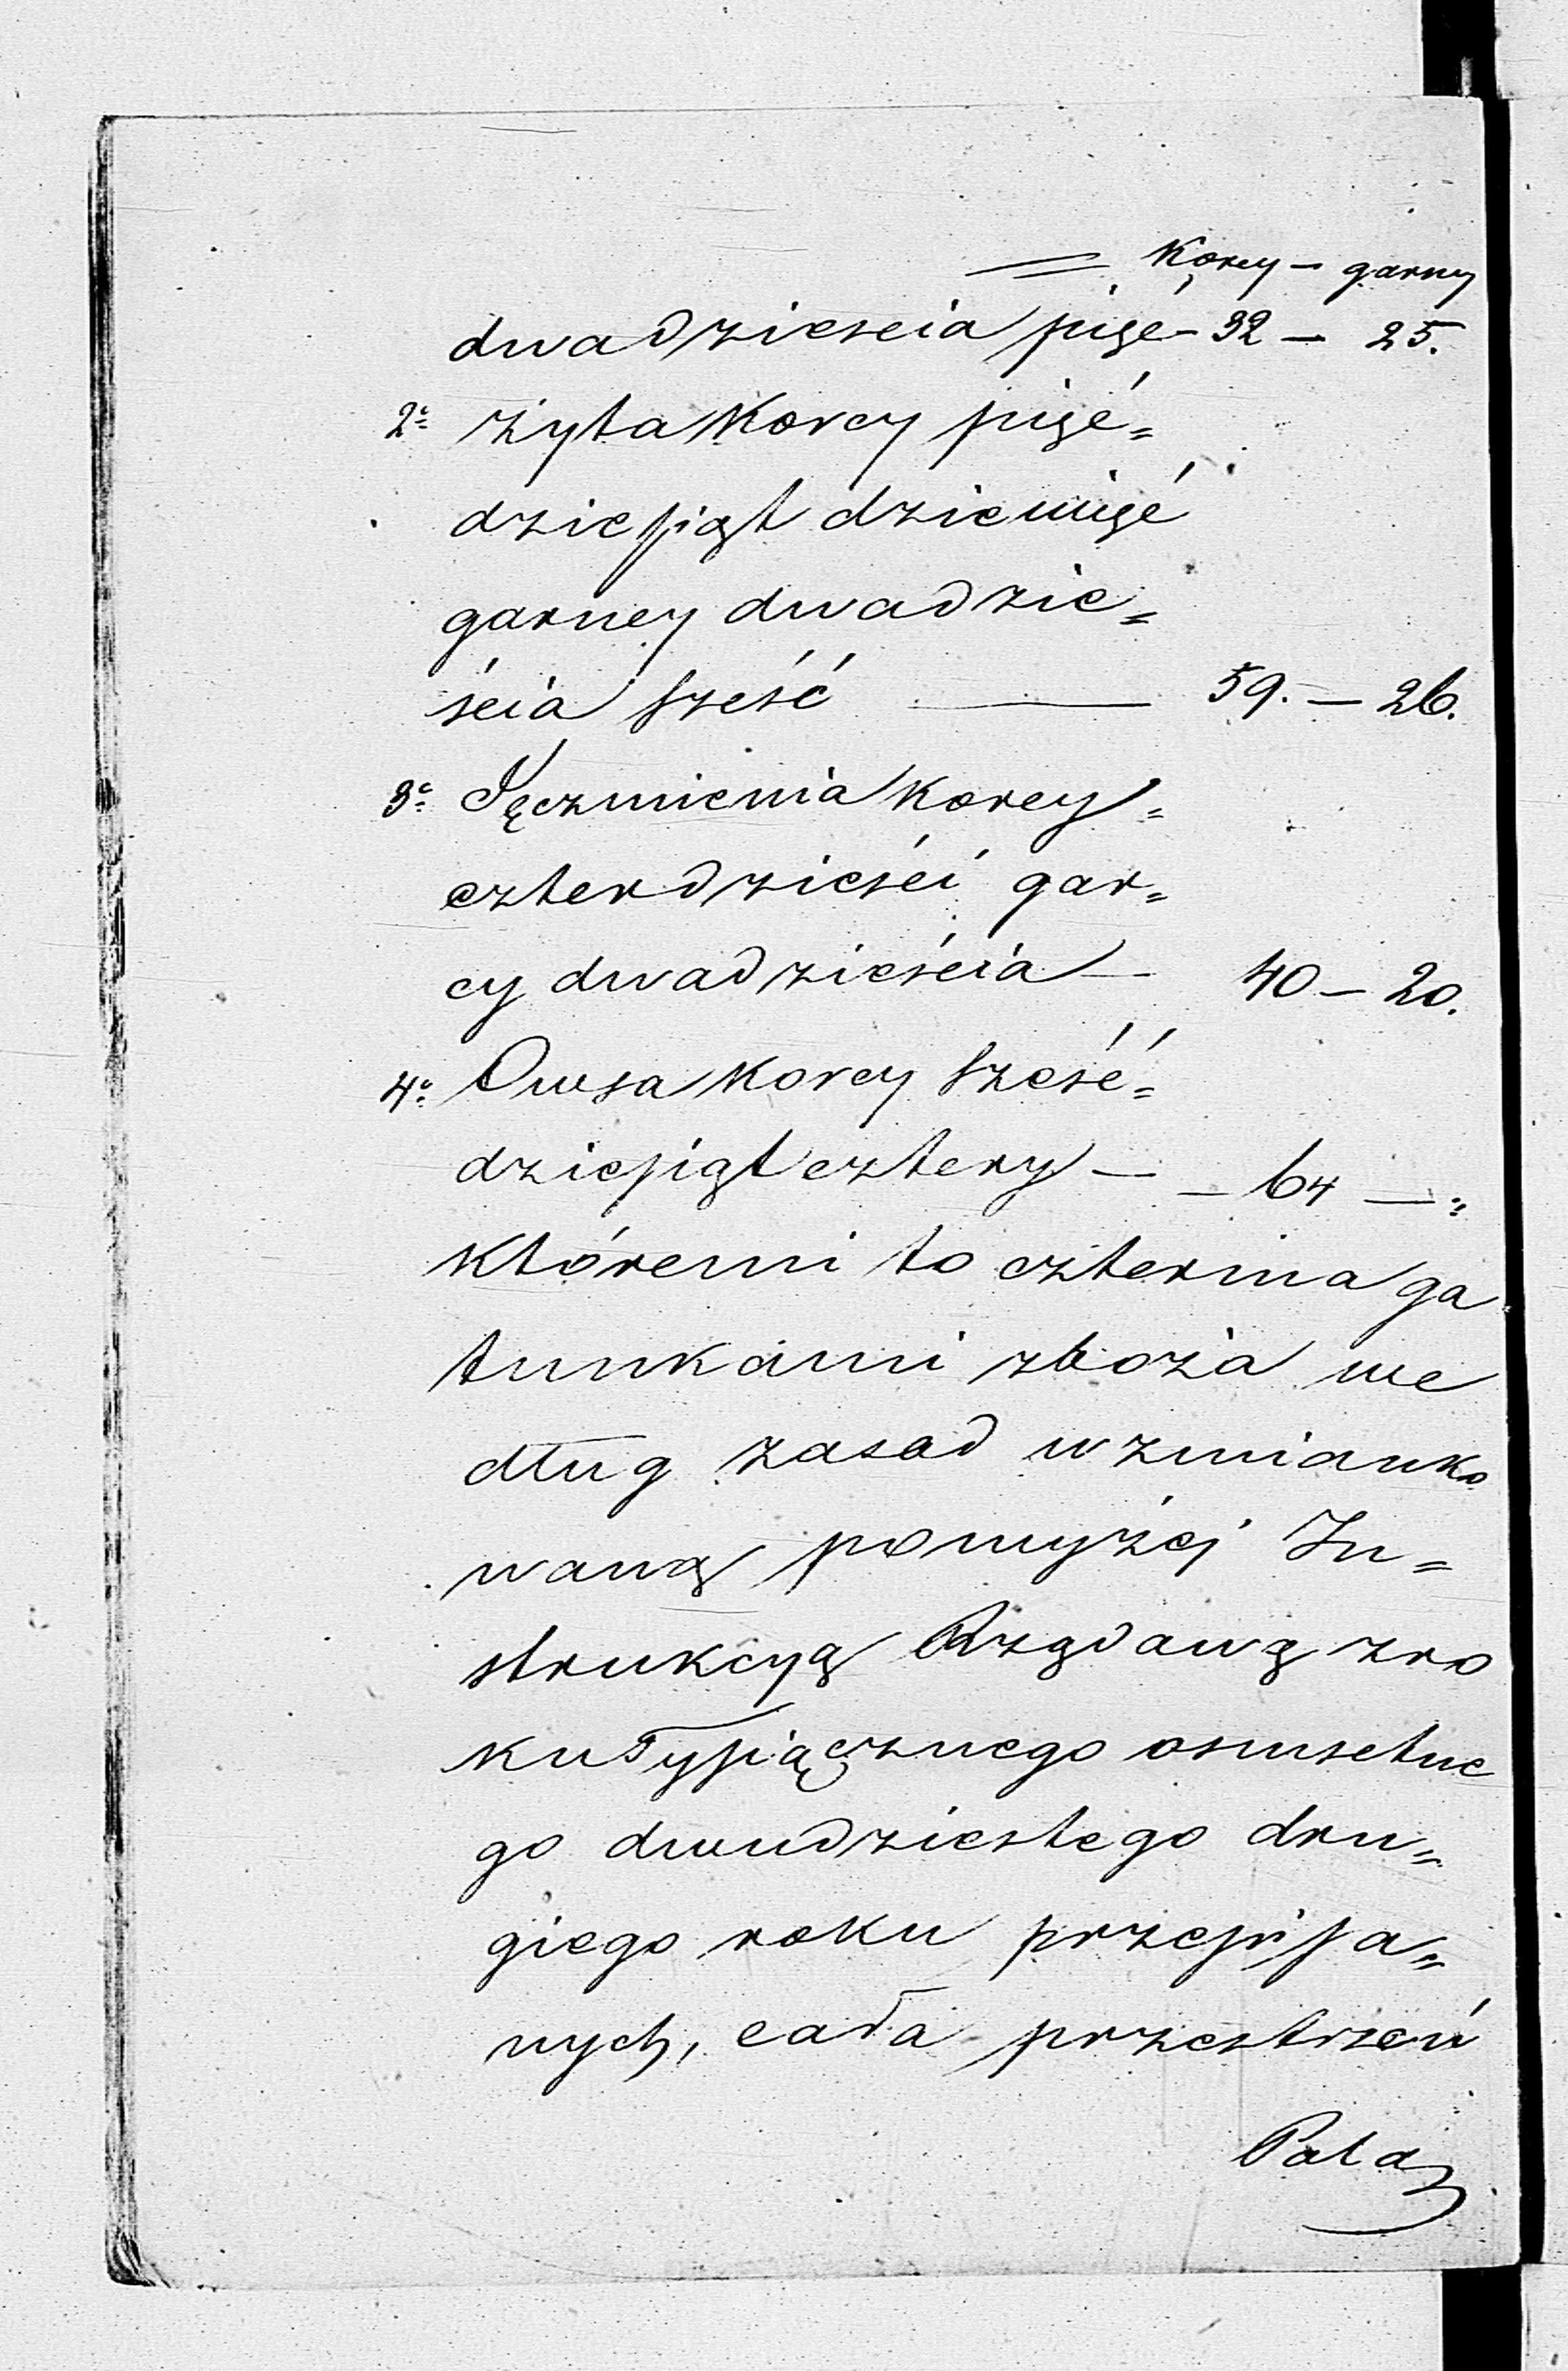 = Korcy – garncy
dwadzieścia pięć – 32 – 25.
2e żyta Korcy pięć=
dziesiąt dziewięć
garncy dwadzie=
ścia sześć — 59. – 26.
3e Jęczmienia Korcy=
czterdzieści gar=
cy dwadzieścia — 40 – 20.
4e Owsa Korcy sześć=
dziesiąt cztery — – 64 — "
któremi to czterma ga
tunkami zboża we
dług zasad wzmianko
waną powyżej In=
strukcyą Rządową z ro
ku Tysiącznego osmsetne
go dwudziestego dru=
giego roku przepisa=
nych, cała przestrzeń
Pola